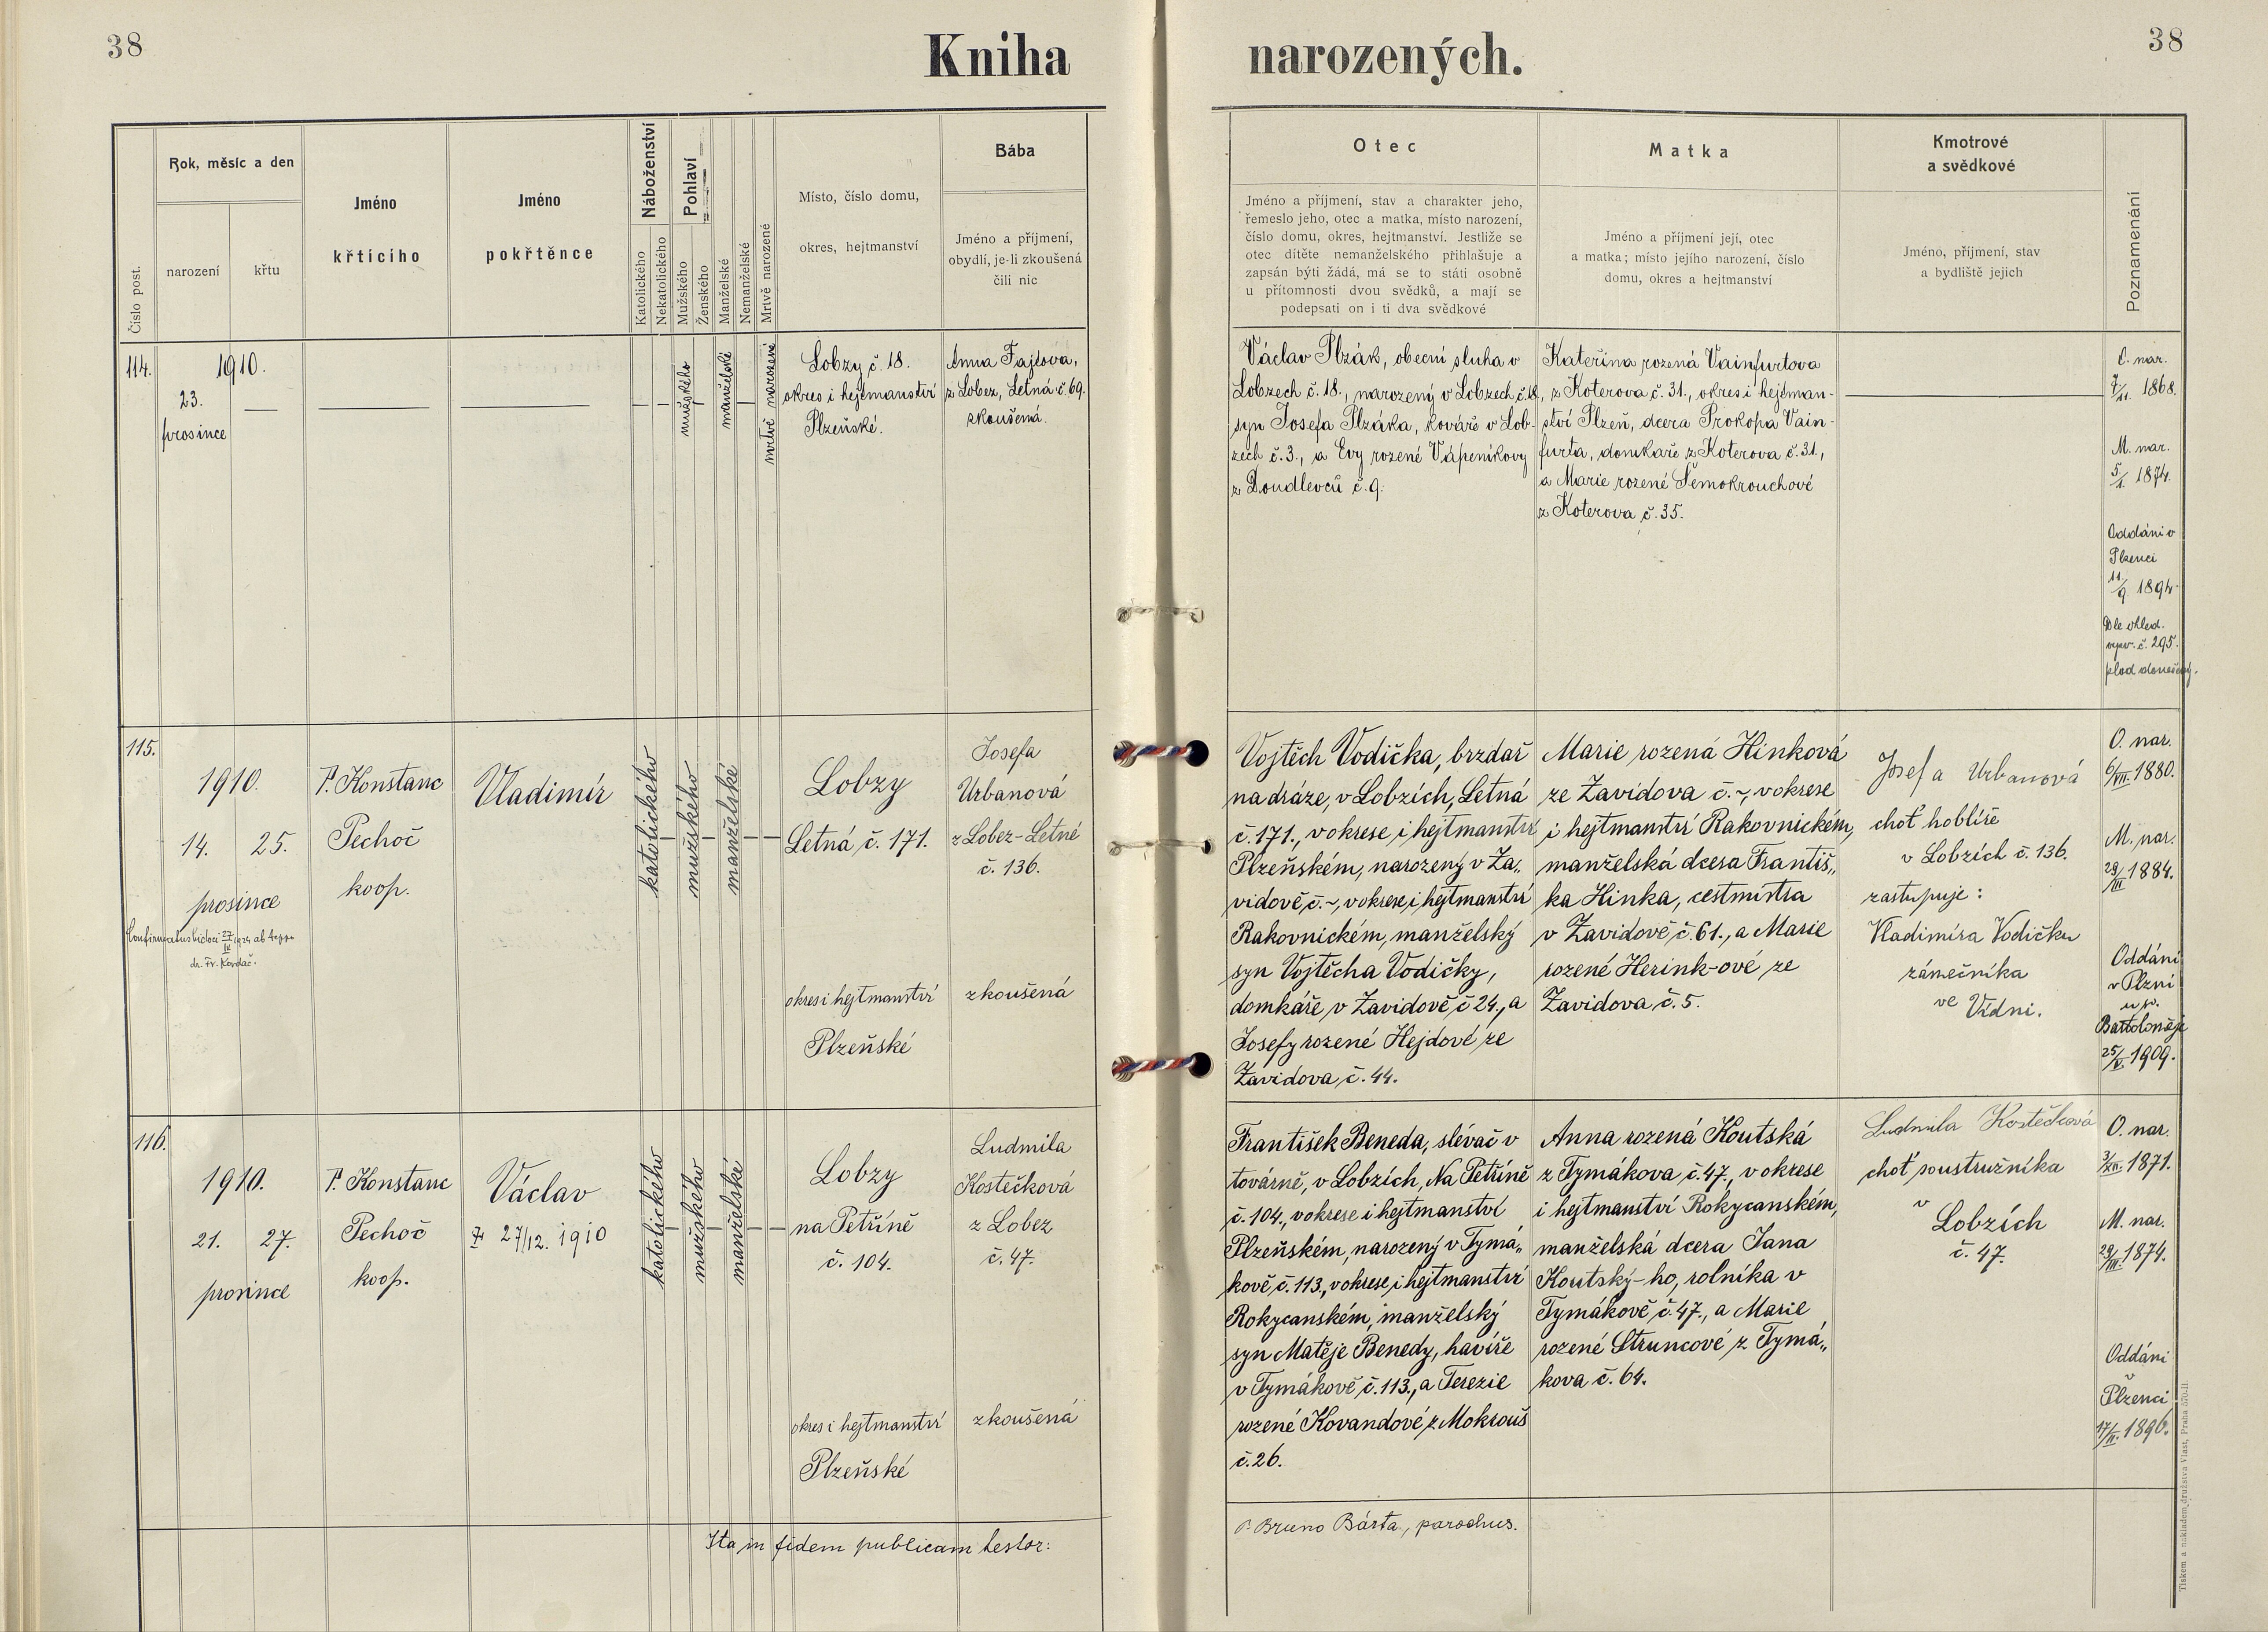 38
Kniha narozených.
38
Číslo post.
Rok, měsíc a den
narození
křtu
Jméno
křtícího
Jméno
pokřtěnce
Náboženství
Katolického
Nekatolického
Pohlaví
Mužského
Ženského
Manželské
Nemanželské
Mrtvě narozené
Místo, číslo domu,
okres, hejtmanství
Bába
Jméno a příjmení,
obydlí, je-li zkoušená
čili nic
Otec
Jméno a příjmení, stav a charakter jeho,
řemeslo jeho, otec a matka, místo narození,
číslo domu, okres, hejtmanství. Jestliže se
otec dítěte nemanželského přihlašuje a
zapsán býti žádá, má se to státi osobně
u přítomnosti dvou svědků, a mají se
podepsati on i ti dva svědkové
Matka
Jméno a příjmení její, otec
a matka; místo jejího narození, číslo
domu, okres a hejtmanství
Kmotrové
a svědkové
Jméno, příjmení, stav
a bydliště jejich
Poznamenání
114.
1910.
23.
prosince
mužského
manželské
mrtvě narozené
Lobzy č. 18.
okres i hejtmanství
Plzeňské.
Anna Fajtova,
z Lobez, Letná č. 69.
zkoušená.
Václav Plzák, obecní sluha v
Lobzech č. 18., narozený v Lobzech č. 18,
syn Josefa Plzáka, kováře v Lob-
zech č. 3., a Evy rozené Vápeníkovy
z Doudlevců č. 9.
Kateřina rozená Vainfurtova
z Koterova č. 31., okres i hejtman-
ství Plzeň, dcera Prokopa Vain-
furta, domkaře z Koterova č. 31.,
a Marie rozené Šemokrouchové
z Koterova č. 35.
O. nar.
1868.
M. nar.
5/ 1874.
Oddáni v
Plzenci
11/9. 1894
Dle ohled.
č. 295.
plod donošený.
115.
1910.
14. 25.
prosince
Confirmatus 27/ 1924 ab Aeppo
dr. Fr. Kordač.
P. Konstanc
Pechoč
koop.
Vladimír
katolického
mužského
manželské
Lobzy
Letná č. 171.
okres i hejtmanství
Plzeňské
Josefa
Urbanová
z Lobez-Letné
č. 136.
zkoušená
Vojtěch Vodička, brzdař
na dráze, v Lobzích, Letná
č. 171., v okrese i hejtmanství
Plzeňském, narozený v Za„
vidově č. ~, v okrese i hejtmanství
Rakovnickém, manželský
syn Vojtěcha Vodičky,
domkáře v Zavidově č 24., a
Josefy rozené Hejdové ze
Zavidova č. 44.
Marie rozená Hinková
ze Zavidova č. ~, v okrese
i hejtmanství Rakovnickém,
manželská dcera Františ„
ka Hinka, cestmistra
v Zavidově č. 61., a Marie
rozené Herink-ové ze
Zavidova č. 5.
Josefa Urbanová
choť hoblíře
v Lobzích č. 136.
zastupuje:
Vladimíra Vodičku
zámečníka
ve Vídni.
O. nar.
6/VII. 1880.
M. nar.
29/III 1884.
Oddáni
v Plzni
u sv.
Bartoloměje
25/V. 1909.
116.
1910.
21. 27.
prosince
P. Konstanc
Pechoč
koop.
Václav
27/12. 1910
katolického
mužského
manželské
Lobzy
na Petříně
č. 104.
okres i hejtmanství
Plzeňské
Ludmila
Kostečková
z Lobez
č. 47.
zkoušená
František Beneda, slévač v
továrně, v Lobzích, Na Petříně
č. 104., v okrese i hejtmanství
Plzeňském, narozený v Tymá„
kově č. 113., v okrese i hejtmanství
Rokycanském, manželský
syn Matěje Benedy, havíře
v Tymákově č. 113., a Terezie
rozené Kovandové z Mokrouš
č. 26.
Anna rozená Koutská
z Tymákova č. 47., v okrese
i hejtmanství Rokycanském,
manželská dcera Jana
Koutský-ho, rolníka v
Tymákově č. 47., a Marie
rozené Struncové z Tymá„
kova č. 64.
Ludmila Kostečková
choť soustružníka
v
Lobzích
č. 47.
O. nar.
3/XII. 1871.
M. nar.
29/ 1874.
Oddáni
v
Plzenci
17/ 1896.
Ita in fidem publicam testor:
P. Bruno Bárta, parochus.
Tiskem a nákladem družstva Vlast, Praha 570-II.